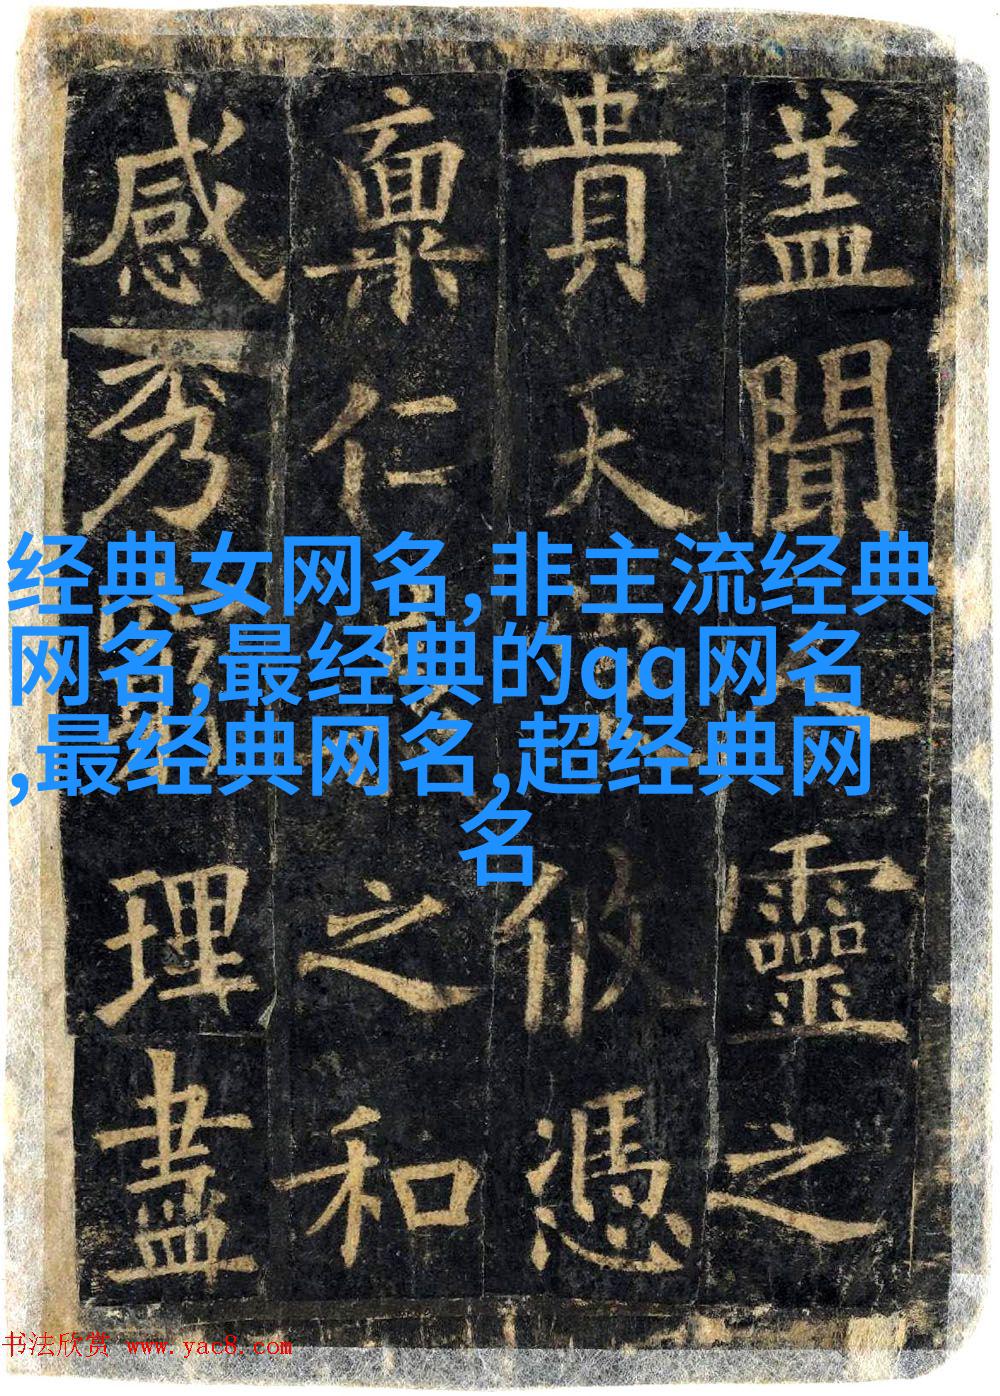 盖聞靈之
貴天攸憑
稟仁之和
感秀理盡
经典女网名,非主流经典
网名,最经典的qq网名
,最经典网名,超经典网
名
书法欣赏 www.yac8.com